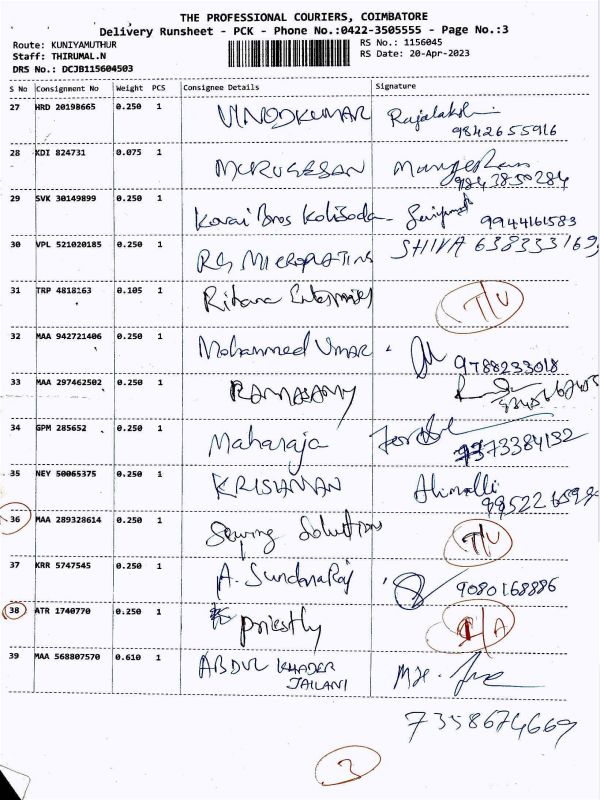 THE PROFESSIONAL COURIERS, COIMBATORE
Delivery Runsheet - PCK - Phone No.:0422-3505555 - Page No.:3
Route: KUNIYAMUTHUR RS No.: 1156045
Staff: THIRUMAL.N RS Date: 20-Apr-2023
DRS No.: DCJB115604503
S No Consignment No Weight PCS Consignee Details Signature
27 HRD 20198665 0.250 1 VINODKUMAR Rajalakshmi
9842655916
28 KDI 824731 0.075 1 MURUGESAN
9843850284
29 SVK 30149899 0.250 1 Kovai Bros Kolisoda 9944161583
30 VPL 521020185 0.250 1 RG MICROPLATING SHIVA 638333169
31 TRP 4818163 0.105 1 Rihana Enterprises T/U
32 MAA 942721406 0.250 1 Mohammed Umar 9788233018
33 MAA 297462502 0.250 1 RAMASAMY
34 GPM 285652 0.250 1 Maharaja
7373384132
35 NEY 50065375 0.250 1 KRISHNAN
36 MAA 289328614 0.250 1 Sewing Solution T/U
37 KRR 5747545 0.250 1 A. SundaraRaj 9080168886
38 ATR 1740770 0.250 1 priestly /A
39 MAA 568807570 0.610 1 ABDUL KHADER
JAILANI
7358674669
3